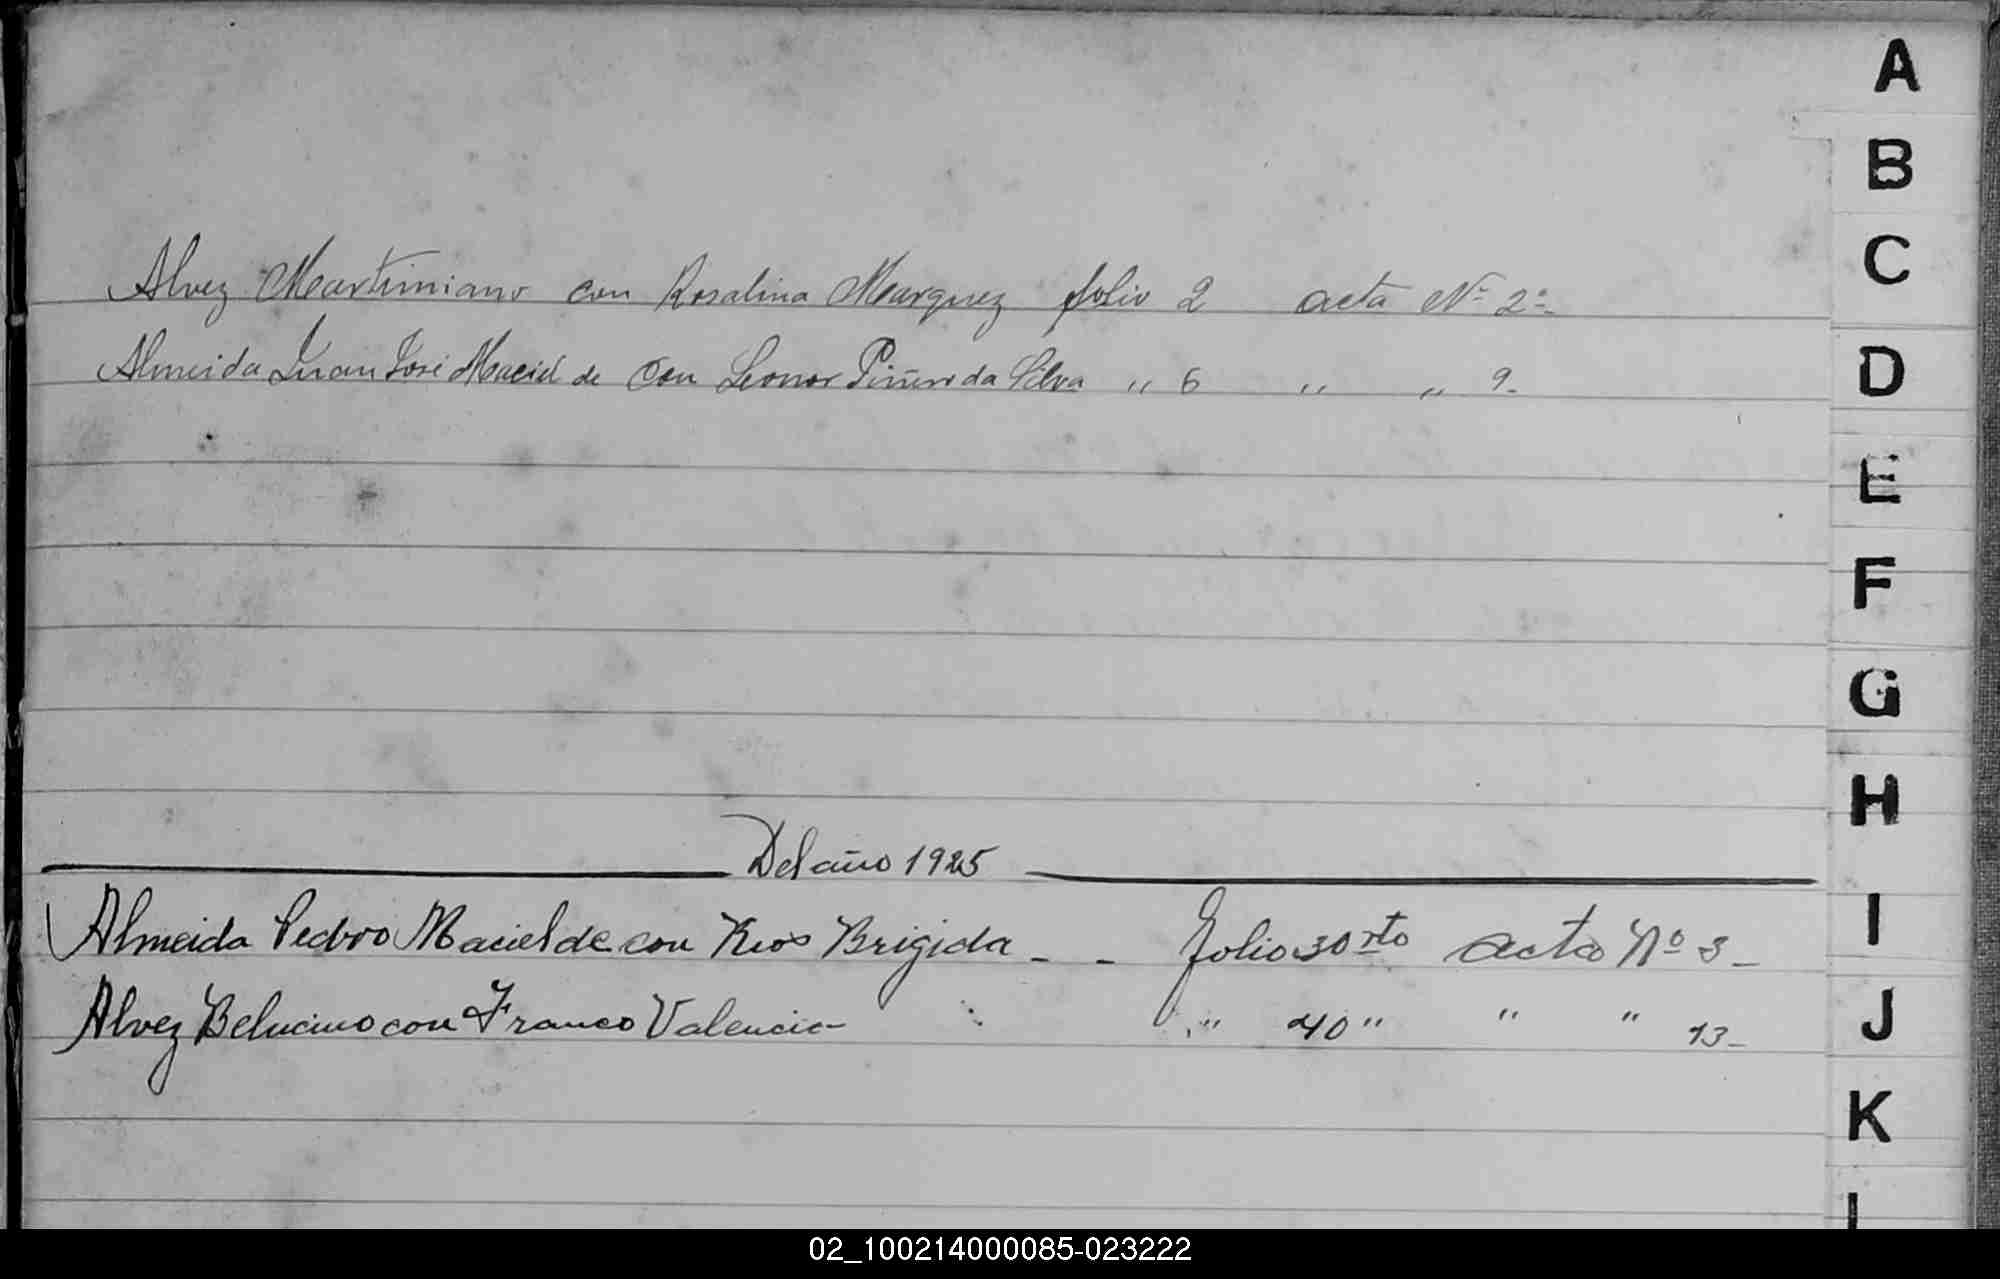 Alvez Martiniano con Rosalina Marquez folio 2 acta Nº 2º
Almeida Juan José Maciel de con Leonor Piñero da Silva " 6 " " 9-
Del año 1925
Almeida Pedro Maciel de con Rios Brigida - - folio 30 vto acta Nº 3-
Alvez Belucino con Franco Valencia " 40 " " " 13-
A
B
C
D
E
F
G
H
I
J
K
02_100214000085-023222